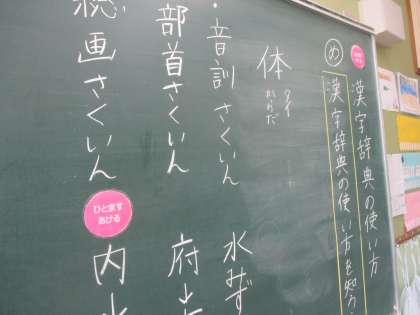 漢字辞典の使い方
め
漢字辞典の使い方を知ろ
体
タイ
からだ
・音訓さくいん
水みず
部首さくいん
府
総画さくいん
ひとます
あける
内